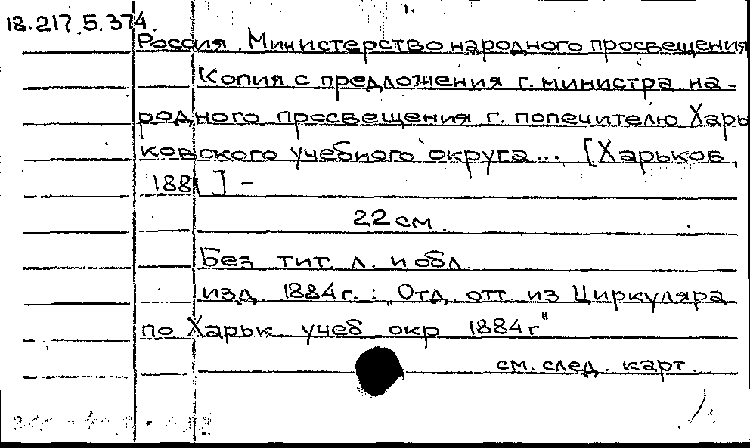 18.217.5.374.
1.
Россия. Министерство народного просвещения
Копия с предложения г. министра на-
родного просвещения г. попечителю Харь
ковского учебного округа... [Харьков,
188 ] -
22 см.
Без тит. л. и обл.
изд. 1884 г.: Отд. отт. из Циркуляра
по Харьк. учеб. окр. 1884 г"
см. след. карт.